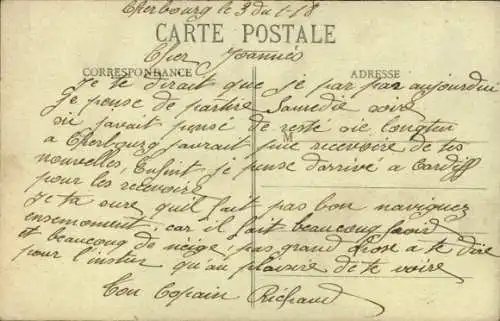 Cherbourg le 3 du 1-18
CARTE POSTALE
Cher Joannès
CORRESPONDANCE
ADRESSE
Je te dirait que je par par aujourdui
Je pense de partire Samedie soire
sie javait pensé de resté sie longten
M
a Cherbourg jaurait pue recevoire de tes
nouvelles, Enfint je pense d'arrivé a Cardiff
pour les recevoire
Je ta sure qu'il fait pas bon naviguez
ensemoment, car il fait beaucoup froid
et beaucoup de neige, pas grand chose a te dire
pour l'instan qu'au plaisire de te voire
Ton Copain